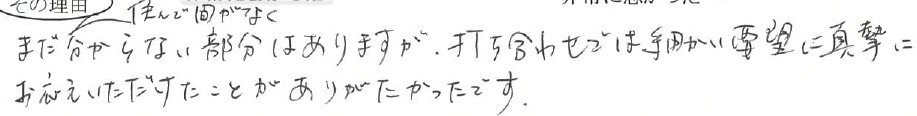 その理由
住んで間がなく
まだ分からない部分はありますが、打ち合わせでは細かい要望に真摯に
お応えいただけたことがありがたかったです。